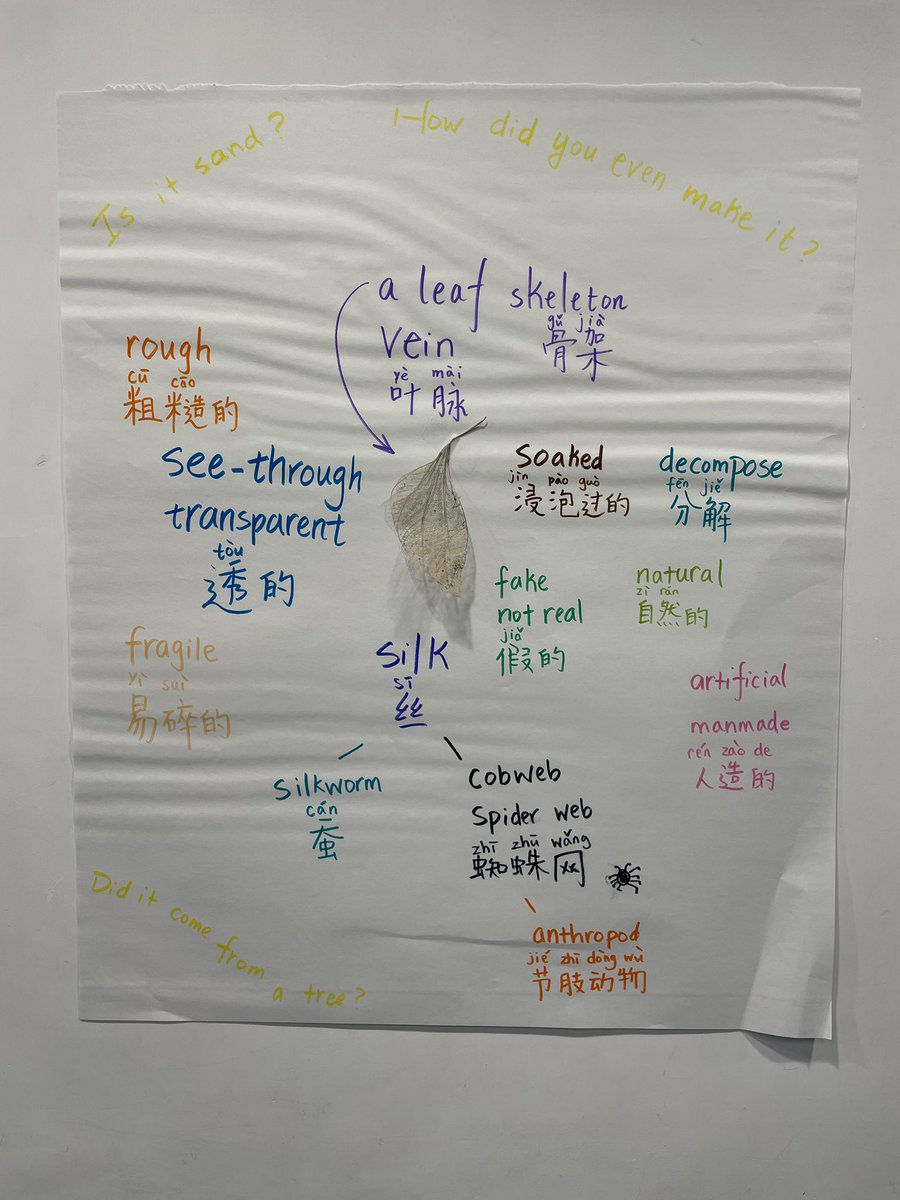 Is it sand?
How did you even make it?
a leaf skeleton
gǔ jià
骨架
vein
yè mài
叶脉
rough
cū cāo
粗糙的
see-through
transparent
tòu
透的
soaked
jìn pào guò
浸泡过的
decompose
fēn jiě
分解
fake
not real
jiǎ
假的
natural
zì rán
自然的
fragile
yì suì
易碎的
silk
sī
丝
artificial
manmade
rén zào de
人造的
silkworm
cán
蚕
cobweb
spider web
zhī zhū wǎng
蜘蛛网
anthropod
jié zhī dòng wù
节肢动物
Did it come from
a tree?